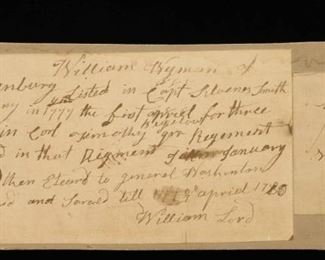 William Wyman of
enburg Listed in Capt Silvenes Smith
ny in 1777 the first apriel for three
in Corl Regiment
d in that Rigment January
then to general Washinton
ed and Sarved till apriel 1780
William Lord